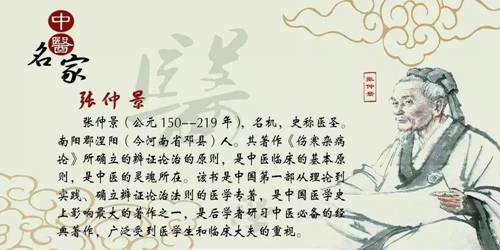 中醫
名家
醫
张仲景
张仲景
张仲景（公元150--219年），名机，史称医圣。
南阳郡涅阳（今河南省邓县）人。其著作《伤寒杂病
论》所确立的辨证论治的原则，是中医临床的基本原
则，是中医的灵魂所在。该书是中国第一部从理论到
实践、确立辨证论治法则的医学专著，是中国医学史
上影响最大的著作之一，是后学者研习中医必备的经
典著作，广泛受到医学生和临床大夫的重视。